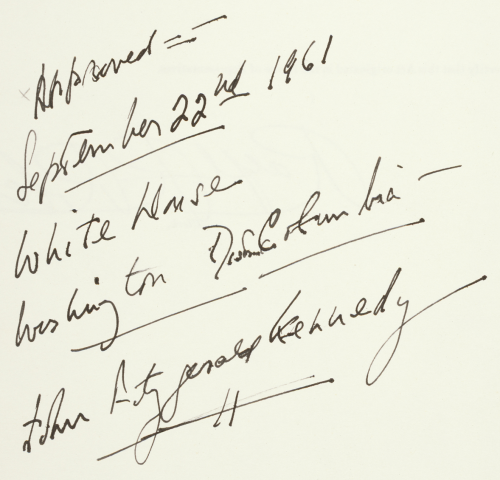 Approved =
September 22nd 1961
White House
Washington Dist. Columbia —
John Fitzgerald Kennedy